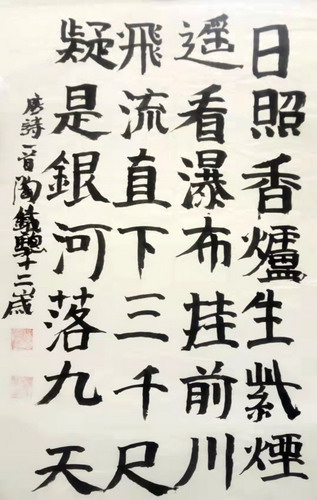 日照香爐生紫煙
遥看瀑布挂前川
飛流直下三千尺
疑是銀河落九天
唐詩一首陶鐵驄十二歲